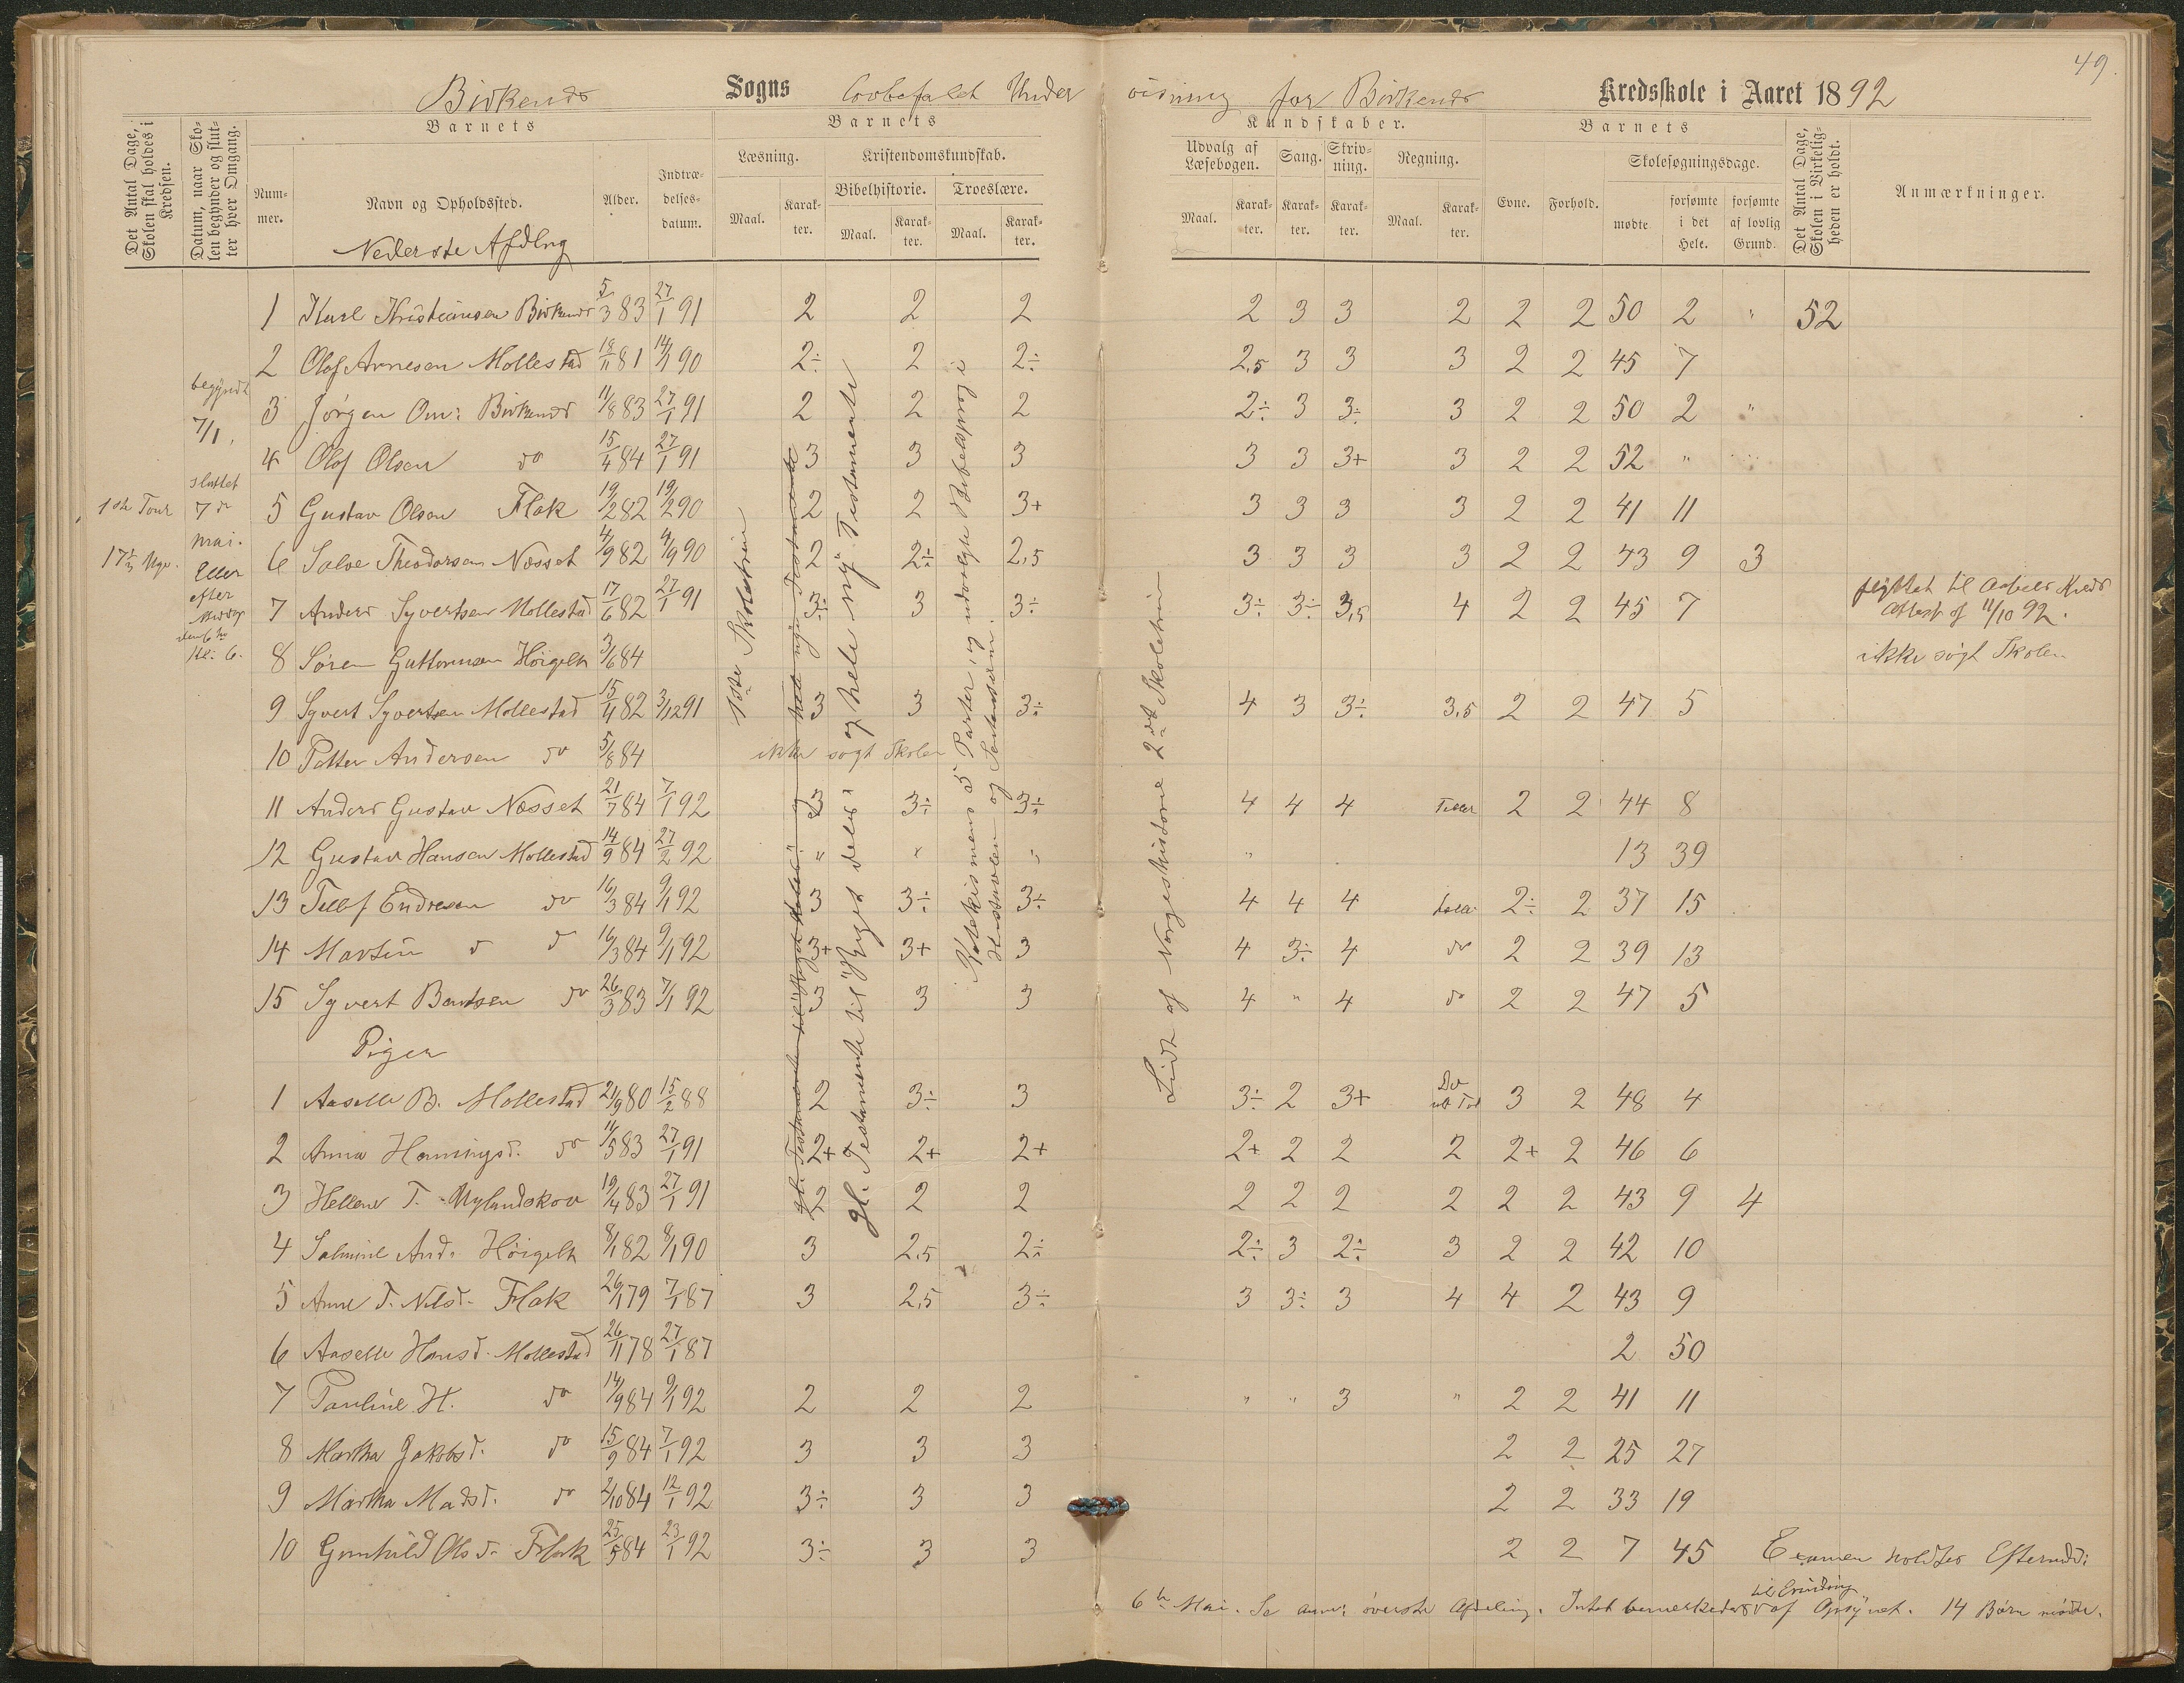 49.
Birkenes Sogns Lovbefalet Under visning for Birkenes Kredsskole i Aaret 1892
Det Antal Dage, Skolen skal holdes i Kredsen.
Datum, naar Skolen begynder og slutter hver Omgang.
Barnets
Nummer.
Navn og Opholdssted.
Alder.
Indtrædelsesdatum.
Barnets
Læsning.
Maal. Karakter.
Kristendomskundskab.
Bibelhistorie. Troeslære.
Maal. Karakter. Maal. Karakter.
Kundskaber.
Udvalg af Læsebogen. Sang. Skrivning. Regning.
Maal. Karakter. Karakter. Karakter. Maal. Karakter.
Barnets
Evne. Forhold.
Skolesøgningsdage.
mødte forsømte i det Hele. forsømte af lovlig Grund.
Det Antal Dage, Skolen i Virkeligheden er holdt.
Anmærkninger.
Nederste Afdlng
1 Karl Kristiansen Birkenes 5/3 83 27/1 91 2 2 2 2 3 3 2 2 2 50 2 " 52
2 Olof Arnesen Mollestad 18/11 81 14/1 90 2÷ 2 2÷ 2,5 3 3 3 2 2 45 7
3 Jørgen Om: Birkenes 11/8 83 27/1 91 2 2 2 2÷ 3 3÷ 3 2 2 50 2 "
4 Olof Olsen do 15/4 84 27/1 91 3 3 3 3 3 3+ 3 2 2 52 "
5 Gustav Olsen Flak 19/2 82 19/2 90 2 2 3+ 3 3 3 3 2 2 41 11
6 Salve Theodorsen Næsset 4/9 82 4/9 90 2 2÷ 2,5 3 3 3 3 2 2 43 9 3
7 Anders Syvertsen Mollestad 17/6 82 27/1 91 3÷ 3 3÷ 3÷ 3÷ 3,5 4 2 2 45 7 flyttet til Kreds Attest af 11/10 92.
8 Søren Guttormsen Høigelt 3/6 84 ikke søgt Skolen
9 Syvert Syvertsen Mollestad 15/4 82 3/12 91 3 3 3÷ 4 3 3÷ 3,5 2 2 47 5
10 Petter Andersen do 5/8 84 ikke søgt Skolen
11 Anders Gustav Næsset 21/7 84 7/1 92 3 3÷ 3÷ 4 4 4 Teller 2 2 44 8
12 Gustav Hansen Mollestad 14/9 84 27/2 92 " " " " 13 39
13 Tellef Endresen do 16/3 84 9/1 92 3 3÷ 3÷ 4 4 4 2÷ 2 37 15
14 Martin d d 16/3 84 9/1 92 3+ 3+ 3 4 3÷ 4 do 2 2 39 13
15 Syvert Bentsen do 26/3 83 7/1 92 3 3 3 4 " 4 do 2 2 47 5
Piger
1 Aaselle B. Mollestad 21/9 80 15/2 88 2 3÷ 3 3÷ 2 3+ Do 3 2 48 4
2 Anna Henningsd. do 11/5 83 27/1 91 2+ 2+ 2+ 2+ 2 2 2 2+ 2 46 6
3 Hellene T. Nylandskov 19/4 83 27/1 91 2 2 2 2 2 2 2 2 2 43 9 4
4 Salmine And. Høigelt 8/1 82 8/1 90 3 2,5 2÷ 2÷ 3 2÷ 3 2 2 42 10
5 Anne T. Nilsd. Flak 26/1 79 7/1 87 3 2,5 3÷ 3 3÷ 3 4 4 2 43 9
6 Aaselle Hansd. Mollestad 26/11 78 27/1 87 2 50
7 Pauline H. do 14/9 84 9/1 92 2 2 2 " " 3 " 2 2 41 11
8 Martha Jakobsd. do 15/9 84 7/1 92 3 3 3 2 2 25 27
9 Martha Madsd. do 2/10 84 12/1 92 3÷ 3 3 2 2 33 19
10 Gunhild Olsd. Flak 25/5 84 23/1 92 3÷ 3 3 2 2 7 45 Examen holdtes Eftermdd:
6te Mai. Se anm: øverste Afdeling. Intet bemerkedes til Erindring af Opsynet. 14 Børn mødte.
begyndt
7/1.
sluttet
7de
mai.
Eller
efter
Middag
den 6te
Kl. 6.
1ste Tour
17 1/3 Uger.
1ste Skoletrin
gl. Testamente til "Riget deles" og hele nye Testamente
gl. Testamente til "Riget deles" og hele ny Testamente
Katekismens 5 Parter og udvalgte Bibelsprog i
Hustavlen og
Lidt af Norgeshistorie 2det Skoletrin